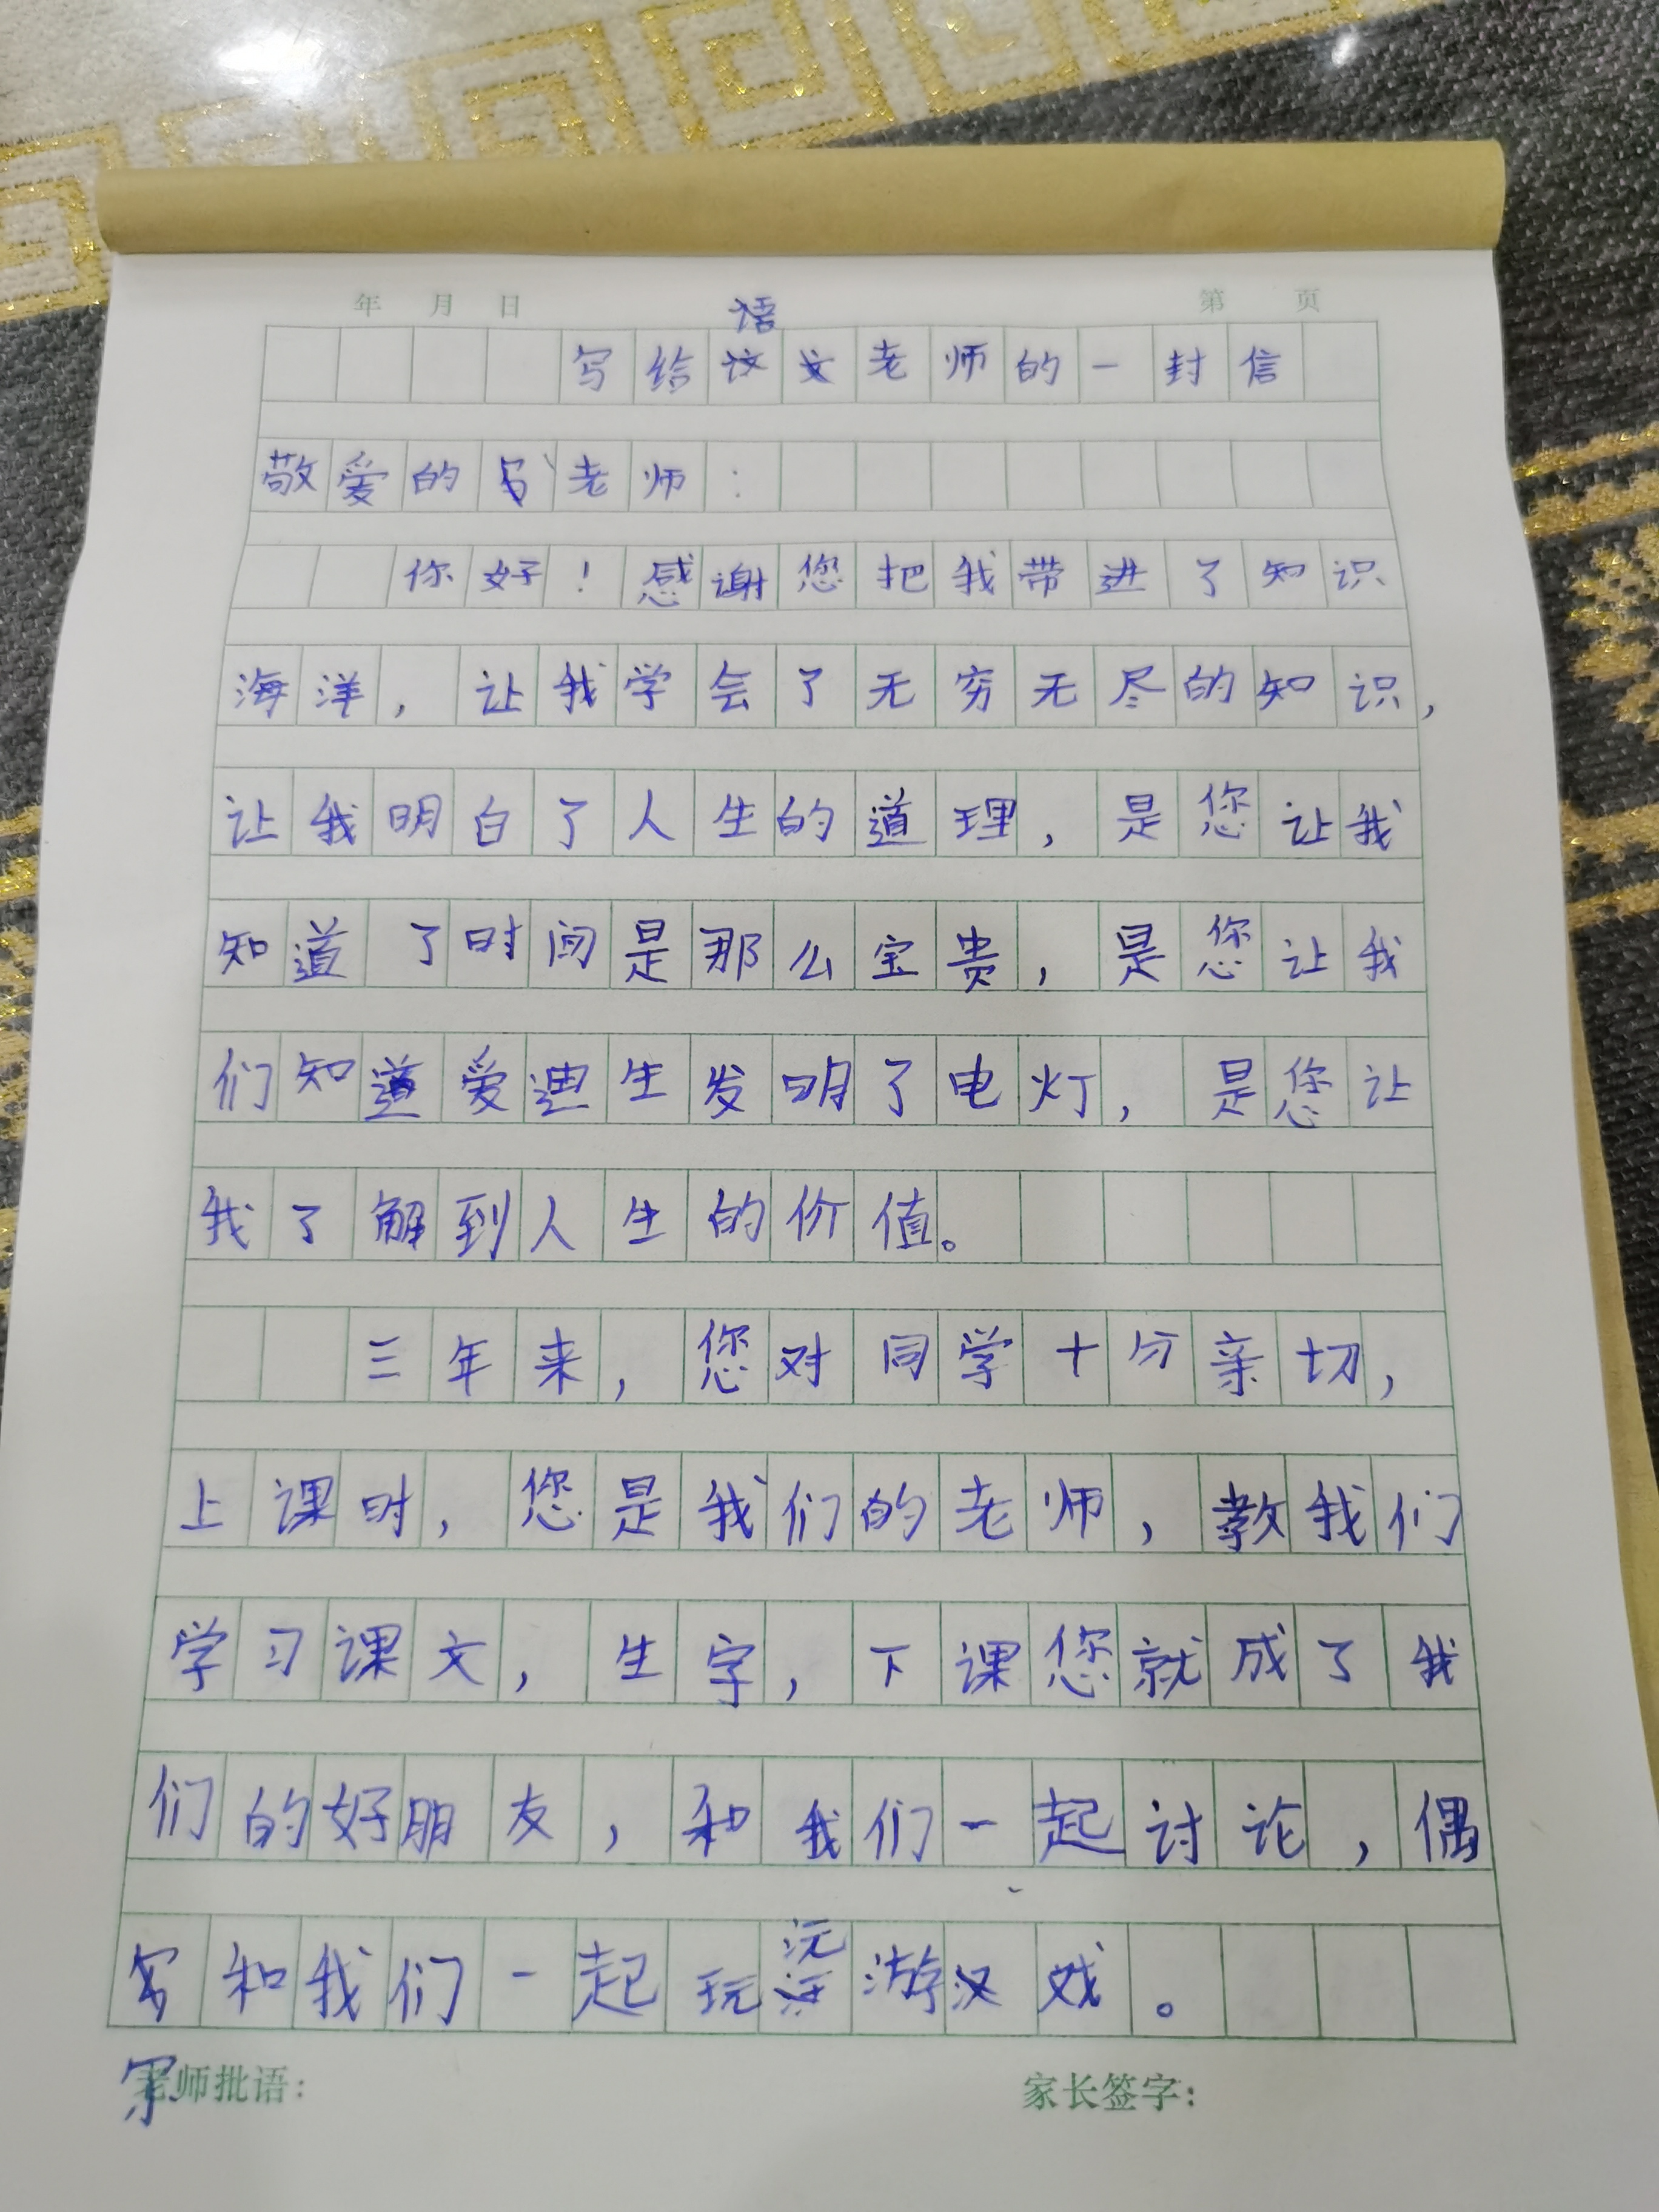 年 月 日
第 页
语
写给文老师的一封信
敬爱的老师:
你好！感谢您把我带进了知识
海洋，让我学会了无穷无尽的知识，
让我明白了人生的道理，是您让我
知道了时间是那么宝贵，是您让我
们知道爱迪生发明了电灯，是您让
我了解到人生的价值。
三年来，您对同学十分亲切，
上课时，您是我们的老师，教我们
学习课文，生字，下课您就成了我
们的好朋友，和我们一起讨论，偶
和我们一起玩游戏。
老师批语:
家长签字: